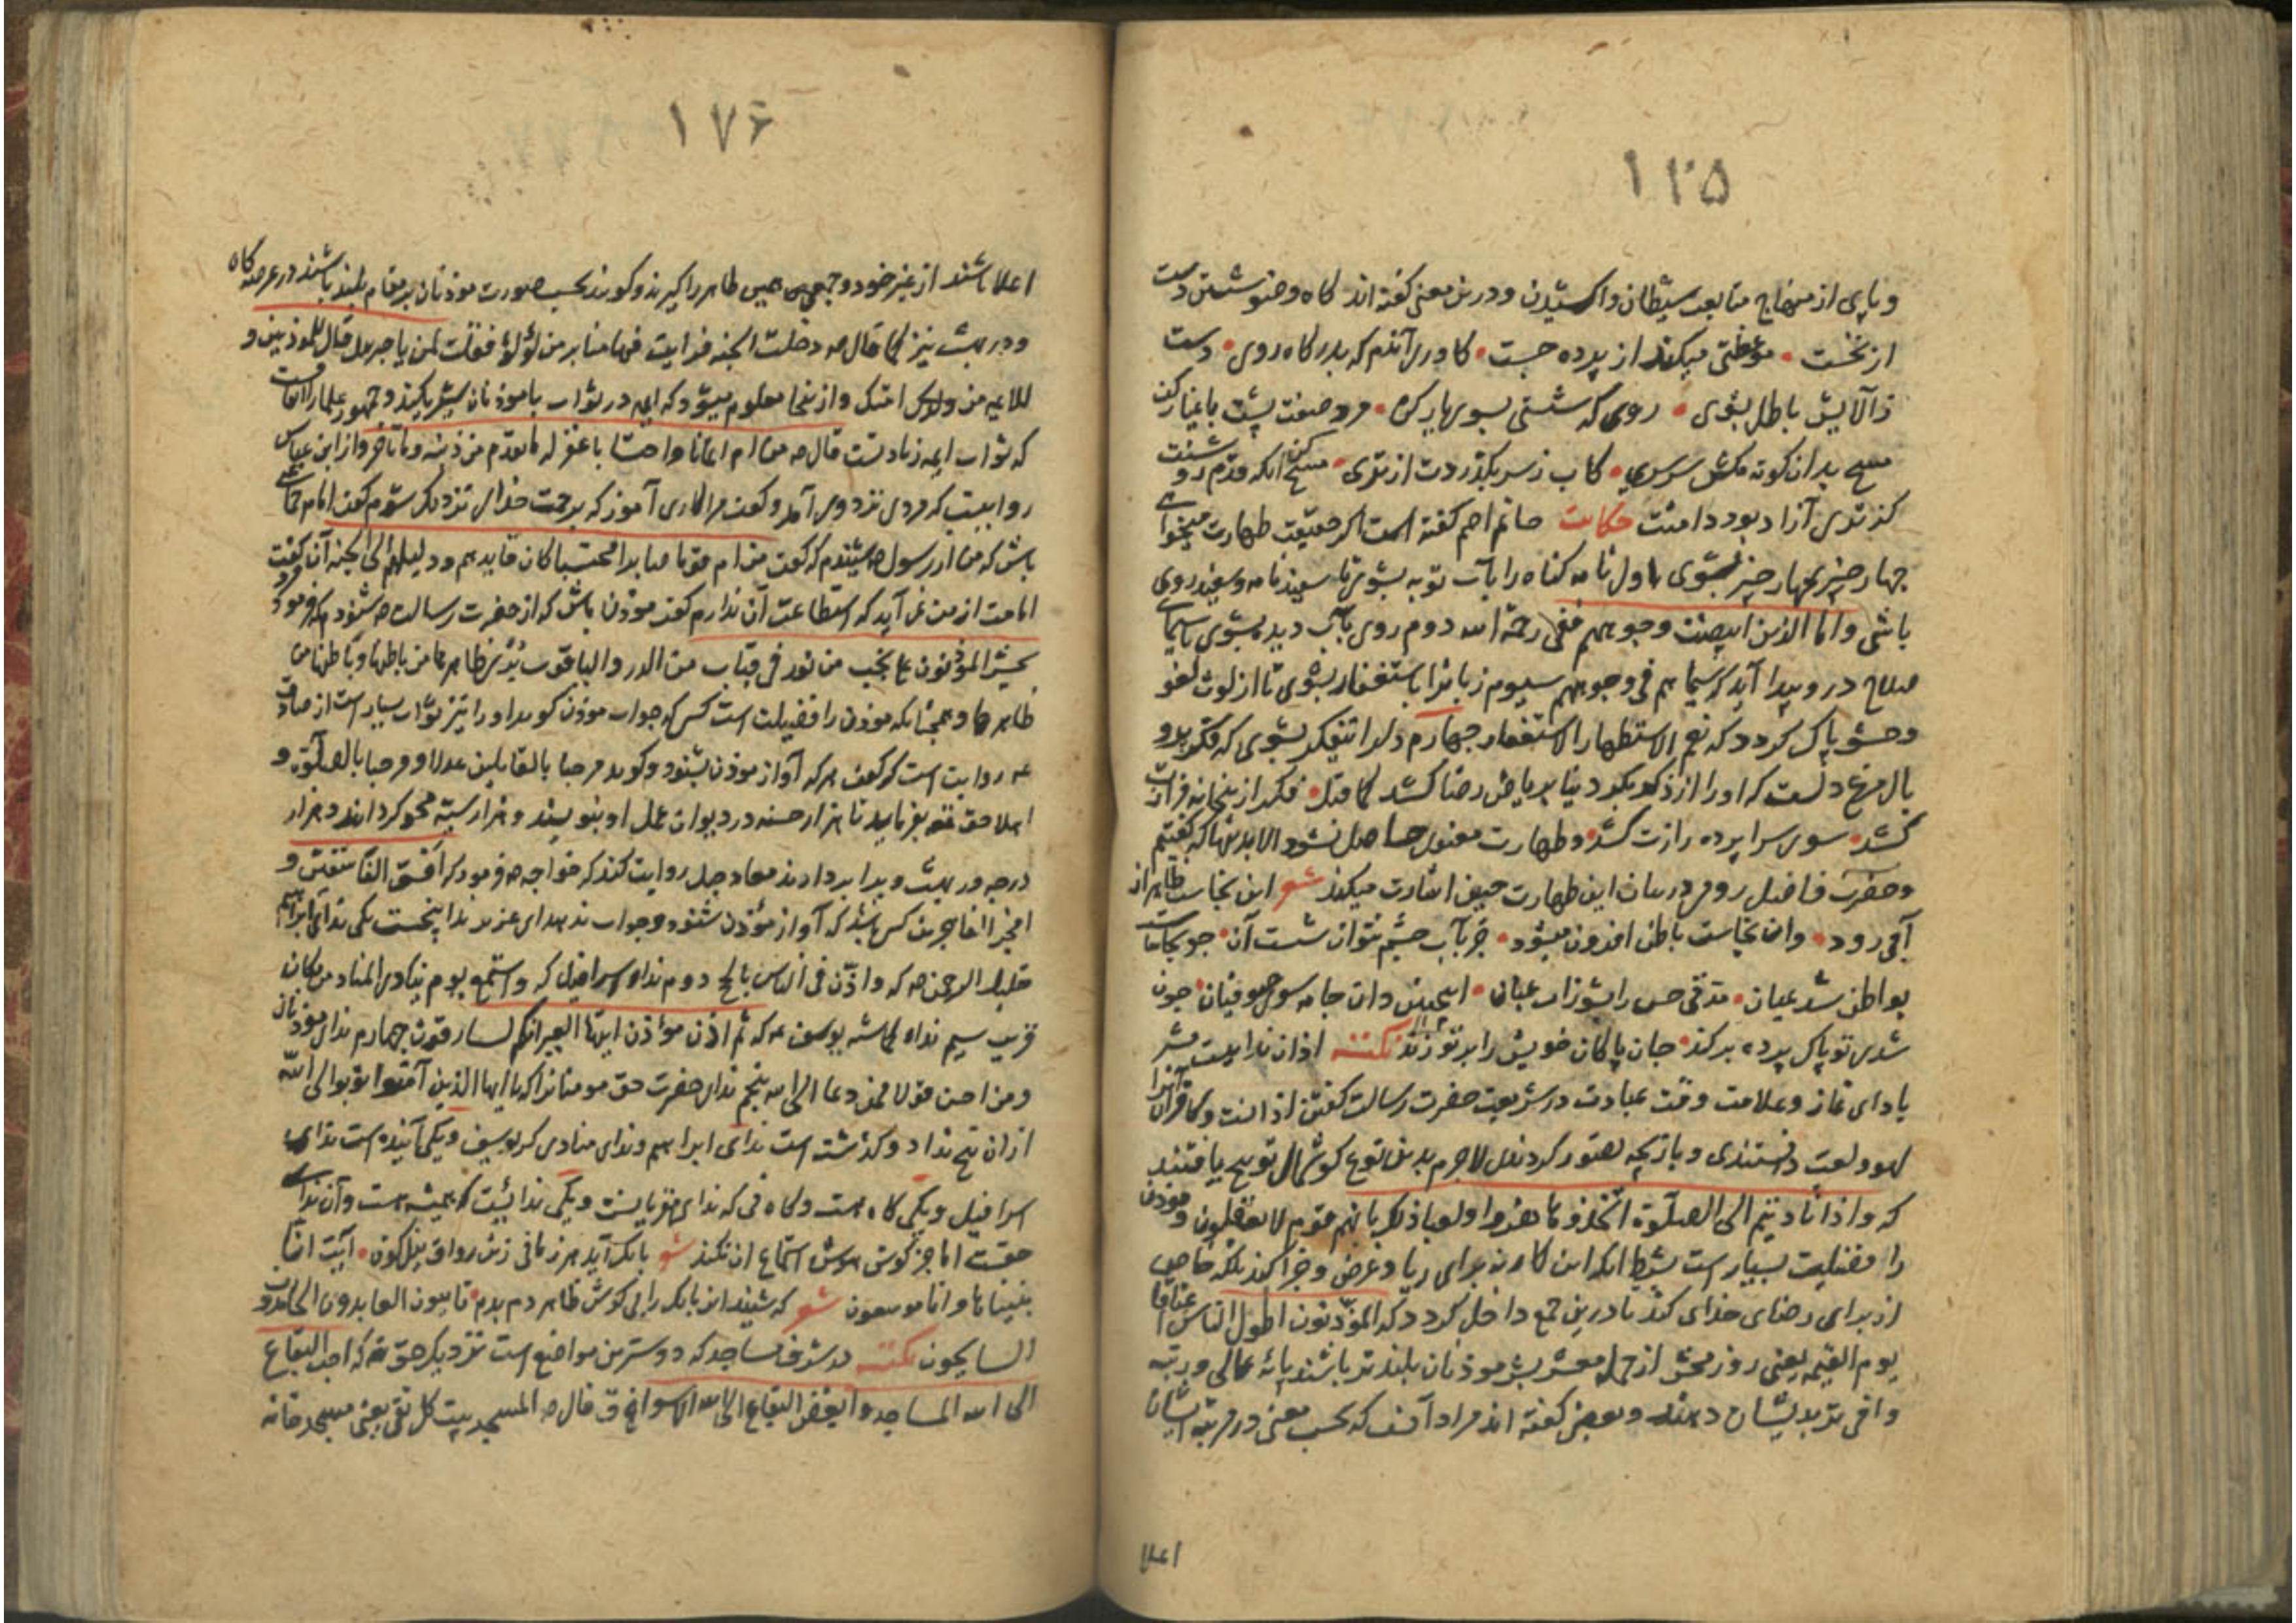 ١٢٥
و پای از منهاج متابعت شیطان واکشیدن و درین معنی کفته اند کاه وضو شستن دست
از نخست • موعظتی میکند از پرده جست • کاوری آندم که بدر کاه روی • دست
ز آلایش باطل بشوی • روی که شستی بسوی یار کن • صفت پشت باغیار کن
مسح بدان کونه مکش سرسری • کاب ز سر بکذردت از تری • مسح کن آنکه قدم رو شنت
کز تری آزاد بود دامنت حکایت حاتم اصم کفته است اکر حقیقت طهارت میخواهی
چهار چیز بچهار چیز بشوی اول نامه کناه را بآب توبه بشوی تا سفید نامه و سفید روی
باشی واما الذین ابیضت وجوههم ففی رحمة الله دوم روی بآب دیده بشوی تا سیمای
صلاح در و پیدا آید که سیماهم فی وجوههم سیوم زبانرا باستغفار بشوی تا از لوث لغو
و حشو پاک کردد که نعم الاستظهار الاستغفار چهارم دلرا بتفکر بشوی که فکر بر و
بال مرغ دلست که او را از دنیا بریاض رضا کشد • فکر از
کشد • سوی سرا پرده رازت کشد • و طهارت معنوی حاصل نشود الا بدینها که کفتیم
و حضرت فاضل رومی در بیان این طهارت چنین اشارت میکند شعر این نجاست ظاهر از
آبی رود • وان نجاست باطن افزون میشود • جز بآب چشم نتوان شستن آن • چو نجاسات
بواطن شد عیان • دان جامه سوی صوفیان • چون
شدی تو پاک پرده برکند • جان پاکان خویش را بر تو زند نکته اذان نداییست مبشر
بادای نماز و علامت وقت عبادت در شریعت حضرت رسالت کفتن اذانست و کافران آنرا
لهو و لعب دانستندی و بازیچه تصور کردندی لاجرم بدین نوع کوشمال توبیخ یافتند
که واذا نادیتم الی الصلوة اتخذوها هزوا ولعبا ذلک بانهم قوم لا یعقلون و موذن
را فضیلت بسیار است بشرط آنکه این کار نه برای ریا و عرض و جزا کند بلکه خاص
از برای رضای خدای کند تا درین جمع داخل کردد که المؤذنون اطول الناس اعناقا
یوم القیمه یعنی روز محشر از جمله معشر بشر موذنان بلندتر باشند پایه عالی و رتبه
وافی تر بدیشان دهند و بعضی کفته اند مراد آنست که بحسب معنی در مرتبه ایشان
اعلا
١٧۶
اعلا باشند از غیر خود و جمعی همین ظاهر را کیرند و کویند بحسب صورت موذنان بر مقام بلند باشند در عرصه کاه
و در بهشت نیز کما قال صه دخلت الجنه فرایت فیها منابر من لؤلؤ فقلت لمن یا جبریل قال للموذنین و
للائمه من امتک و از ینجا معلوم میشود که ایمه در ثواب با موذنان شریکند و جمهور علما را
که ثواب ایمه زیادتست قال صه من ام ایمانا واحتسابا غفر له ما تقدم من ذنبه وما تأخر و از ابن عباس
روایتست که مردی نزد وی آمد و کفت مرا کاری آموز که برحمت خدای نزدیک شوم کفت امام جماعت
باش که من از رسول صه شنیدم که کفت من ام قوما صابرا محتسبا کان قایدهم و دلیلهم الی الجنه آن مرد کفت
امامت از من نمی آید که استطاعت آن ندارم کفت موذن باش که از حضرت رسالت صه شنودم که فرمود
یحشر المؤذنون علی نجب من نور فی قباب من الدر والیاقوت یری ظاهرها من باطنها وباطنها من
ظاهرها و همچنانکه موذن را فضیلت است کسی که جواب موذن کوید او را نیز ثواب بسیار است از صادق
عه روایت است که کفت هر که آواز موذن بشنود و کوید مرحبا بالقایلین عدلا ومرحبا بالصلوة و
اهلا حق تعه بفرماید تا هزار حسنه در دیوان عمل او بنویسند و هزار سیئه محو کردانند و هزار
درجه در بهشت ویرا بر دارند معاذ جبل روایت کند که خواجه صه فرمود که افسق الفاسقین و
افجر الفاجرین کسی باشد که آواز مؤذن شنود و جواب ندهد ای عزیز ندا پنجست یکی ندای ابراهیم
خلیل الرحمن صه که واذن فی الناس بالحج دوم نداء اسرافیل که واستمع یوم یناد المناد من مکان
قریب سیم نداء یوسف عه که ثم اذن مؤذن ایتها العیر انکم لسارقون چهارم ندای موذنان
ومن احسن قولا ممن دعا الی الله پنجم ندای حضرت حق مومنانرا که یا ایها الذین آمنوا توبوا الی الله
ازان پنج ندا دو کذشته است ندای ابراهیم و ندای منادی یوسف و یکی آینده است ندای
اسرافیل و یکی کاه هست و کاه نی که ندای مقریانست و یکی نداییست که همیشه هست و آن ندای
حقست اما جز کوش هوش استماع ان نکند شعر بانک آید هر زمانی زین رواق نیلکون • آیت انا
بنیناها وانا لموسعون شعر که شنید این بانک را بی کوش ظاهر دم بدم • تایبون العابدون الحامدون
السایحون نکته در شرف مساجد که دوسترین مواضع است نزدیک حق تعه که احب البقاع
الی الله المساجد وابغض البقاع الی الله الاسواق قال صه المسجد بیت کل تقی یعنی مسجد خانه